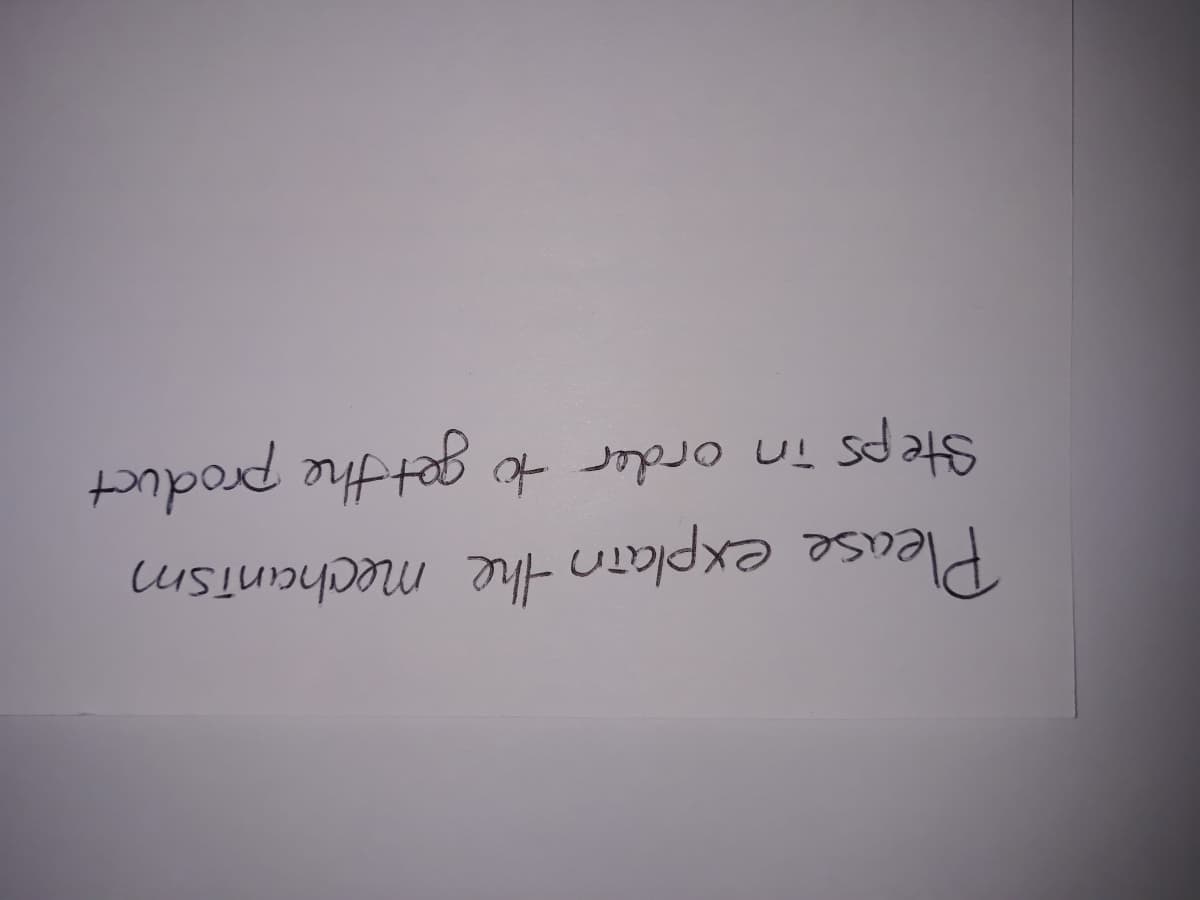 Please explain the mechanism
steps in order to get the product